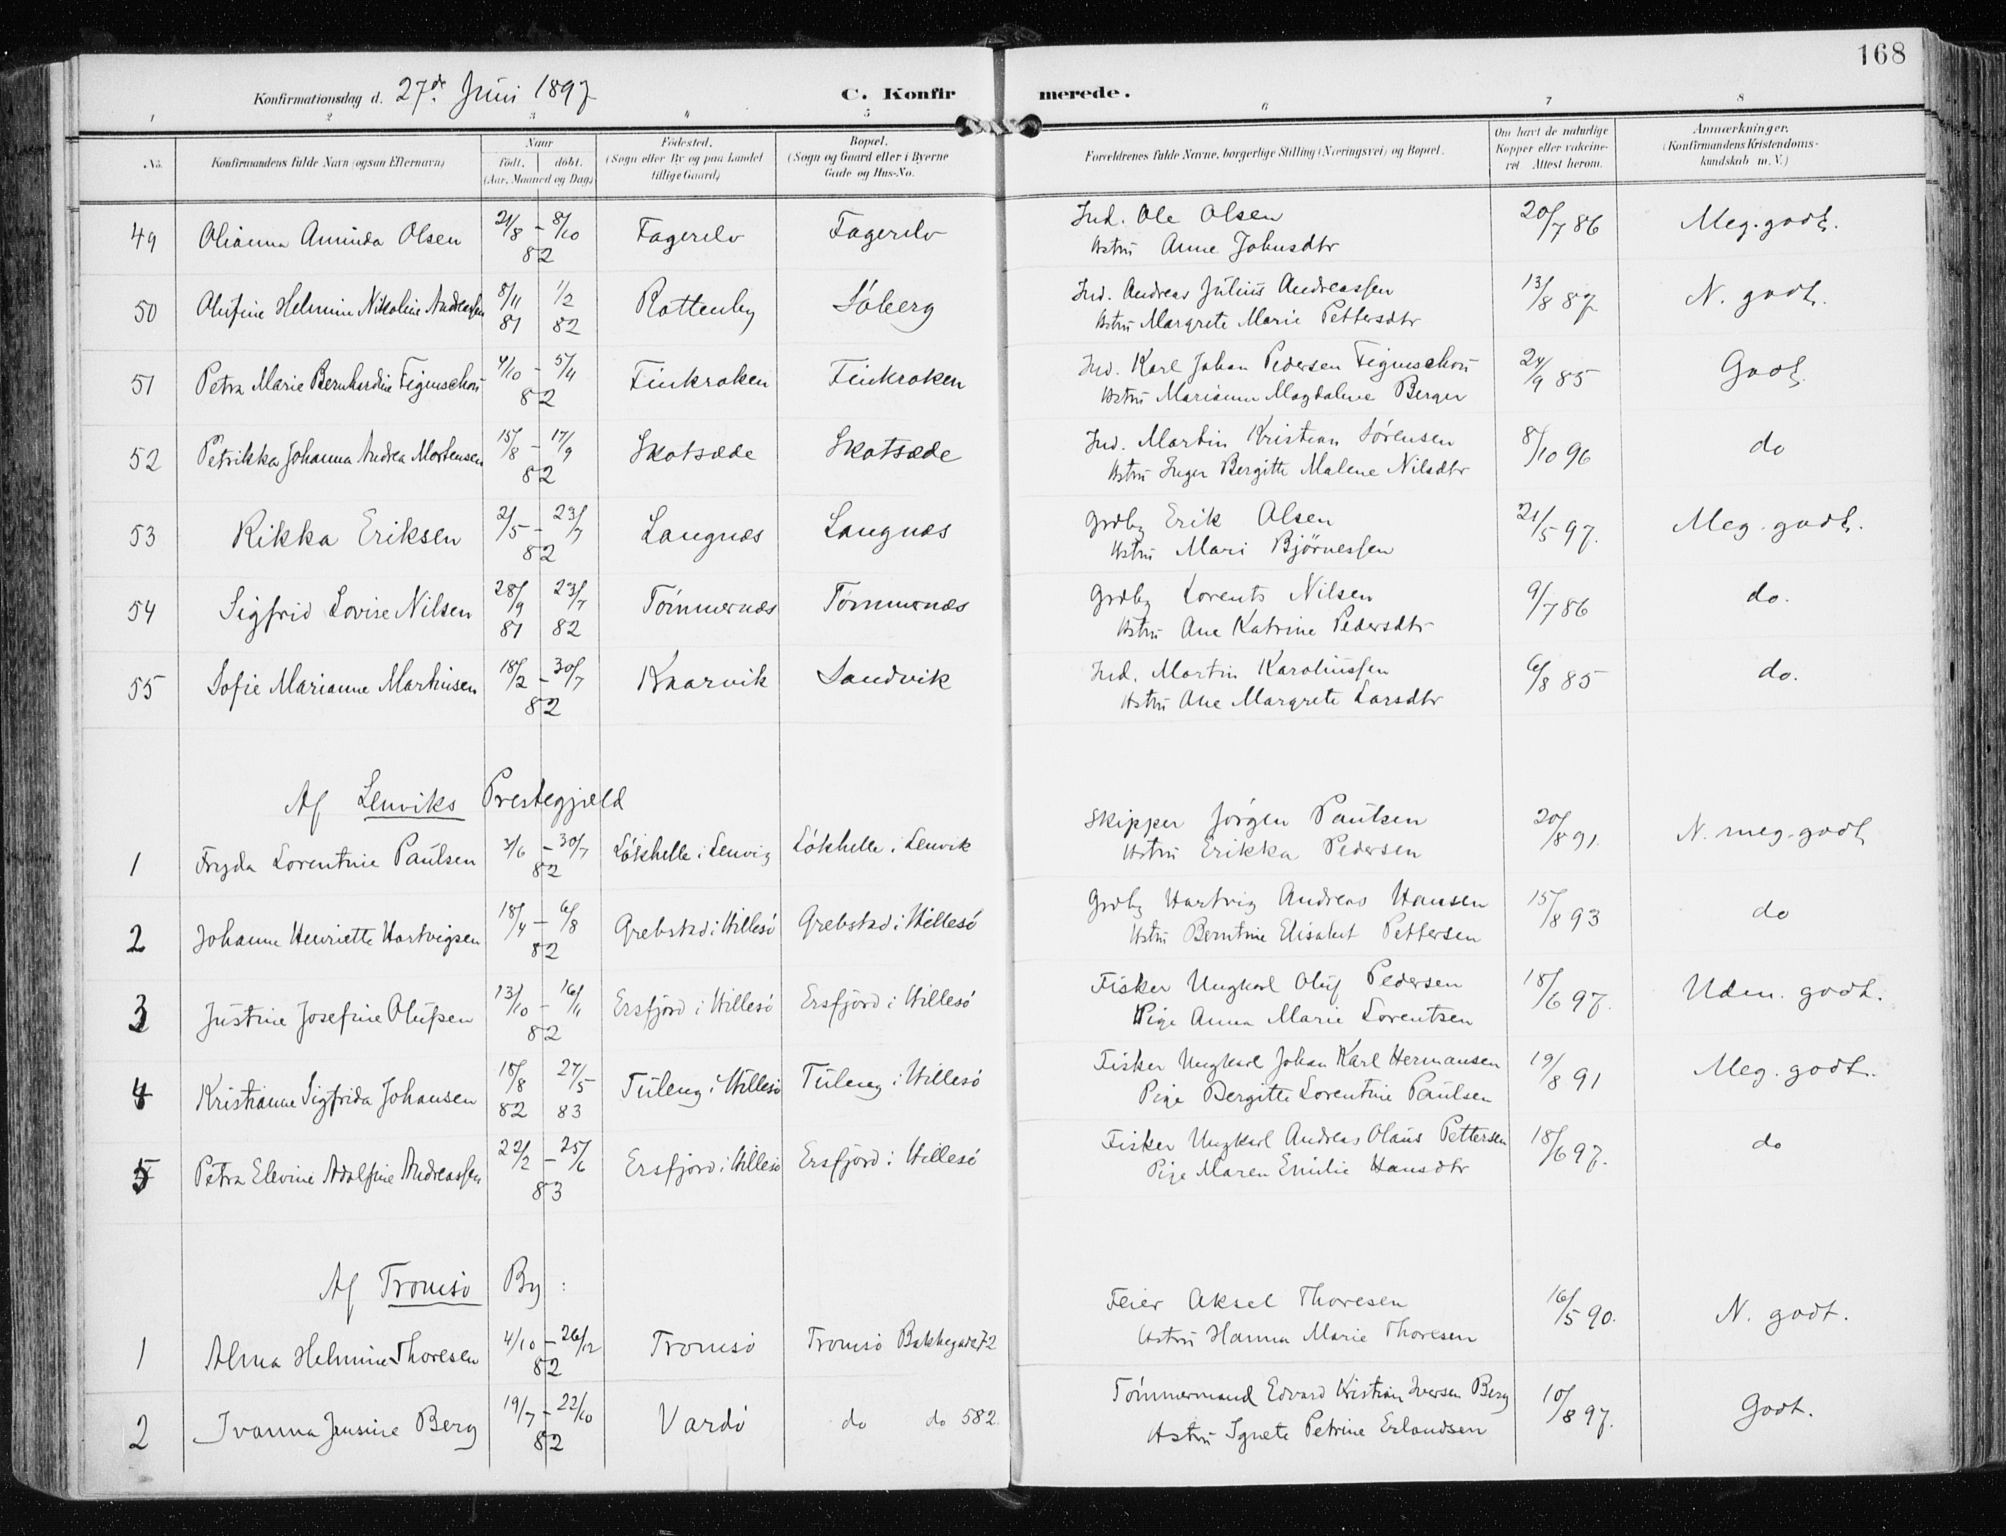 168
Konfirmationsdag d. 27de Juni 1897
C. Konfirmerede.
1 2 3 4 5 6 7 8
No. Konfirmandens fulde Navn (ogsaa Efternavn) Naar født. døbt. (Aar, Maaned og Dag) Fødested. (Sogn eller By og paa Landet tillige Gaard) Bopæl. (Sogn og Gaard eller i Byerne Gade og Hus-No. Forældrenes fulde Navne, borgerlige Stilling (Næringsvei) og Bopæl. Om havt de naturlige Kopper eller vakcineret. Attest herom. Anmærkninger. (Konfirmandens Kristendomskundskab m. V.)
49 Olianna Aminda Olsen 21/8 – 8/10 82 Fagerelv Fagerelv Ind. Ole Olsen 20/7 86 Meg. godt.
Hstru Anne Johnsdtr
50 Olufine Helmine Nikoline Andreassen 8/11 81 1/2 82 Rottenby Søberg Ind. Andreas Julius Andreassen 13/8 87 N. godt.
Hstru Margrete Marie Pettersdtr
51 Petra Marie Bernhardine Figenschou 4/10 – 5/11 82 Finkroken Finkroken Ind. Karl Johan Pedersen Figenschou 24/9 85 Godt.
Hstru Marianna Magdalene Berger
52 Petrikka Johanna Andrea Mortensen 15/8 – 17/9 82 Skotsæde Skotsæde Ind. Martin Kristian Sørensen 8/10 96 do
Hstru Inger Bergitte Malene Nilsdtr
53 Rikka Eriksen 2/5 – 23/7 82 Langnæs Langnæs Grdbr Erik Olsen 21/5 97. Meg. godt.
Hstru Mari Bjørnessen
54 Sigfrid Lovise Nilsen 28/9 81 23/7 82 Tømmernæs Tømmernæs Grdbr Lorents Nilsen 9/7 86 do.
Hstru Ane Katrine Pedersdtr
55 Sofie Marianne Martinsen 18/2 – 30/7 82 Kaarvik Sandvik Ind. Martin Karoliussen 6/8 85 do.
Hstru Ane Margrete Larsdtr
Af Lenviks Prestegjæld
1 Fryda Lorentine Paulsen 3/6 – 30/7 82 Løkhelle i Lenvig Løkhelle i Lenvik Skipper Jørgen Paulsen 20/8 91. N. meg. godt
Hstru Erikka Pedersen
2 Johanne Henriette Hartvigsen 18/4 – 6/8 82 Grebstad i Hillesø Grebstad i Hillesø Grdbr Hartvig Andreas Hansen 15/8 93 do
Hstru Berntine Elisabet Pettersen
3 Justine Josefine Olufsen 13/10 – 16/11 82 Ersfjord i Hillesø Ersfjord i Hillesø Fisker Ungkarl Oluf Pedersen 18/6 97. Uden. godt.
Pige Anna Marie Lorentsen
4 Kristianne Sigfrida Johansen 18/8 82 27/5 83 Tuleng i Hillesø Tuleng i Hillesø Fisker Ungkarl Johan Karl Hermansen 19/8 91 Meg. godt.
Pige Bergitte Lorentine Paulsen
5 Petra Elevine Adolfine Andreassen 22/2 – 25/6 83 Ersfjord i Hillesø Ersfjord i Hillesø Fisker Ungkarl Andreas Olaus Pettersen 18/6 97. do
Pige Maren Emilie Hansdtr
Af Tromsø By :
1 Alma Helmine Thoresen 4/10 – 26/12 82 Tromsø Tromsø Bakkegade 72 Feier Aksel Thoresen 16/5 90. N. godt.
Hstru Hanna Marie Thoresen
2 Ivanna Jensine Berg 19/7 – 22/10 82 Vardø do do 582. Tømmermand Edvard Kristian Iversen Berg 10/8 97. Godt.
Hstru Ignete Petrine Erlandsen